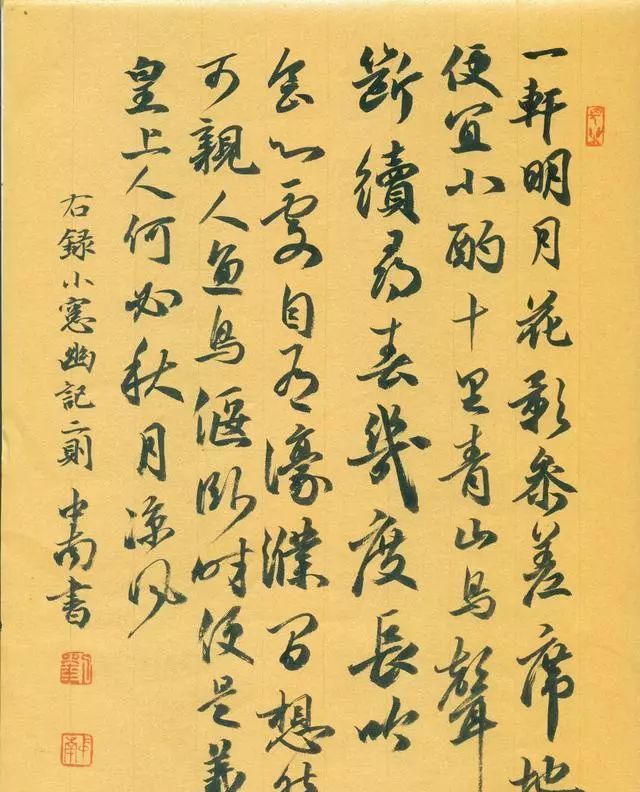 一軒明月花影參差席地
便宜小酌十里青山鳥聲
斷續尋春幾度長吟
會心處自有濠濮間想然
可親人魚鳥偃臥時便是羲
皇上人何必秋月涼風
右錄小窻幽記二則 中南書